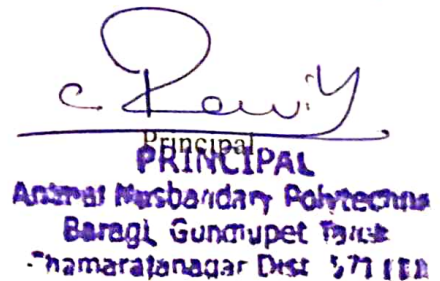 C Ravi Y
Principal
PRINCIPAL
Animal Husbandary Polytechnic
Baragi, Gundlupet Taluk
Chamarajanagar Dist 571